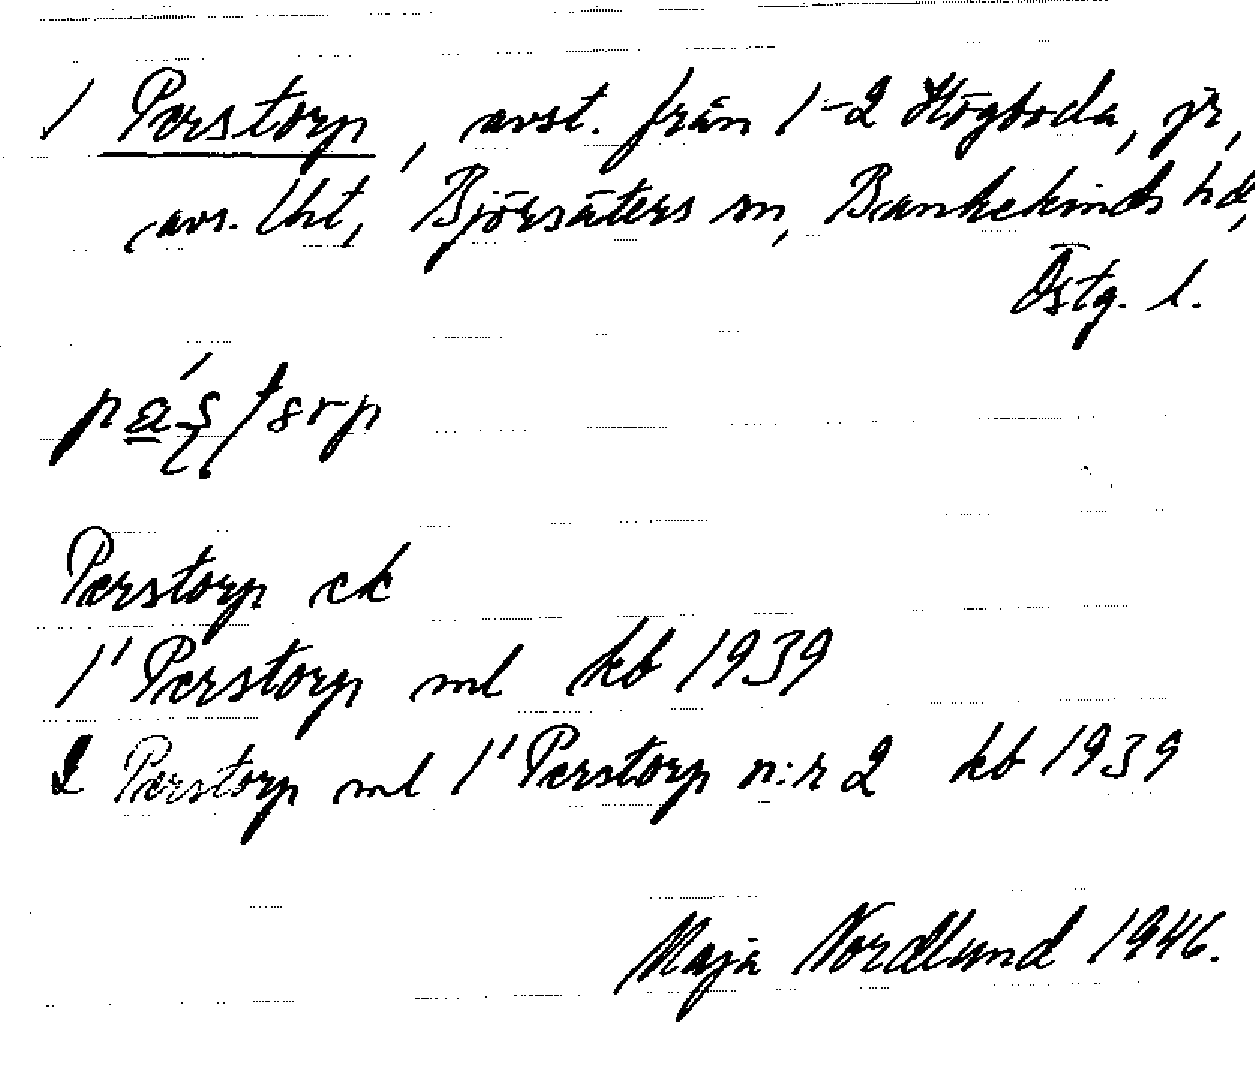 1 Perstorp, avst. från 1-2 Högboda, jr,
avs. lht, Björsäters sn, Bankekinds hd,
Östg. l.
Perstorp ek
1' Perstorp ml kb 1939
2 Perstorp ml 1' Perstorp n:r 2 kb 1939
Maja Nordlund 1946.